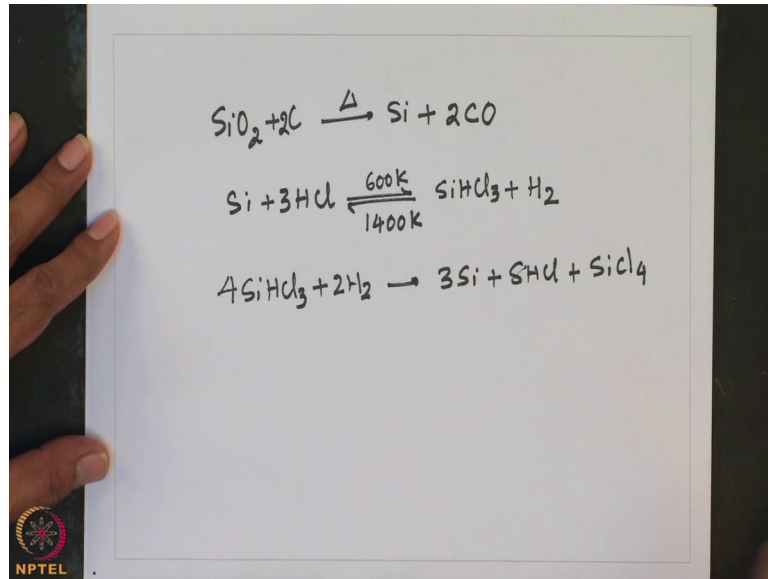 SiO₂+2C —Δ→ Si + 2CO
Si + 3HCl ⇌ (600K / 1400K) SiHCl₃ + H₂
4SiHCl₃ + 2H₂ → 3Si + 8HCl + SiCl₄
NPTEL